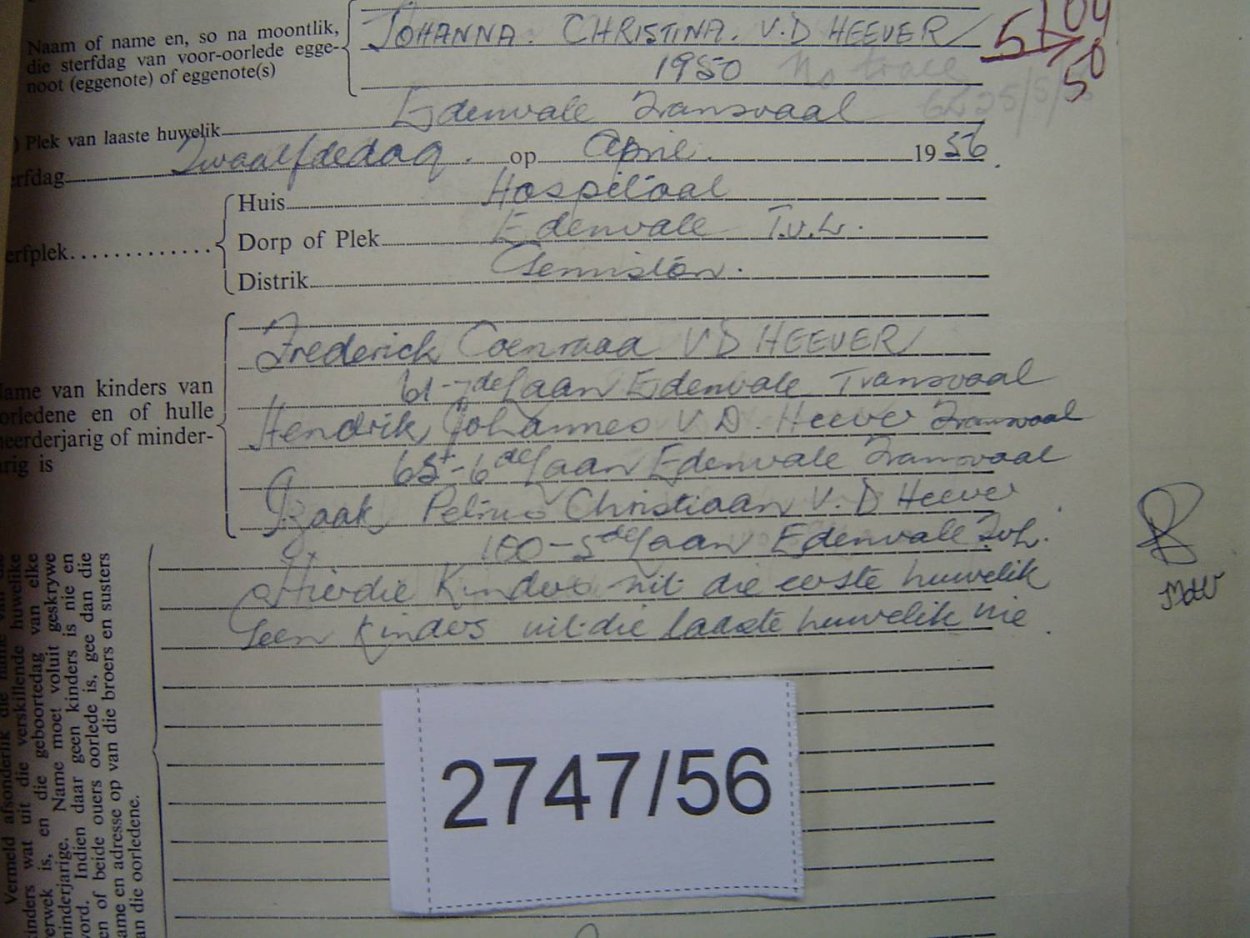 Naam of name en, so na moontlik,
die sterfdag van voor-oorlede egge-
noot (eggenote) of eggenote(s)
JOHANNA. CHRISTINA. V.D HEEVER
1950 No trace
5104
50
) Plek van laaste huwelik
Edenvale Transvaal
erfdag Twaalfdedag. op April. 1956.
erfplek
Huis Hospitaal
Dorp of Plek Edenvale T.v.L.
Distrik Germiston.
Name van kinders van
orledene en of hulle
neerderjarig of minder-
rig is
Frederick Coenraad V D HEEVER
61-7de Laan Edenvale Transvaal
Hendrik Johannes V.D. Heever Transvaal
65-6de Laan Edenvale Transvaal
Izaak Petrus Christiaan V.D Heever
100-5de Laan Edenvale Tvl.
Hierdie Kinders uit die eerste huwelik
Geen Kinders uit die laaste huwelik nie.
Vermeld afsonderlik die name van die
kinders wat uit die verskillende huwelike
verwek is, en die geboortedag van elke
minderjarige. Name moet voluit geskrywe
word. Indien daar geen kinders is nie en
en of beide ouers oorlede is, gee dan die
name en adresse op van die broers en susters
an die oorledene.
2747/56